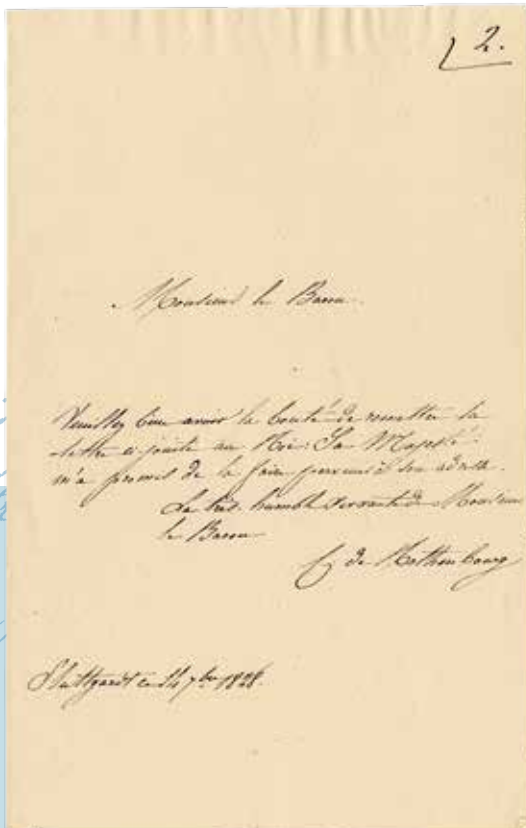 2.
Monsieur le Baron.
Veuillez bien avoir la bonté de remettre la
lettre ci jointe au Roi: Sa Majesté
m'a promis de la faire parvenir à son adresse.
La très humble servante de Monsieur
le Baron
C de Rothenbourg
Stuttgardt 7bre 1828.